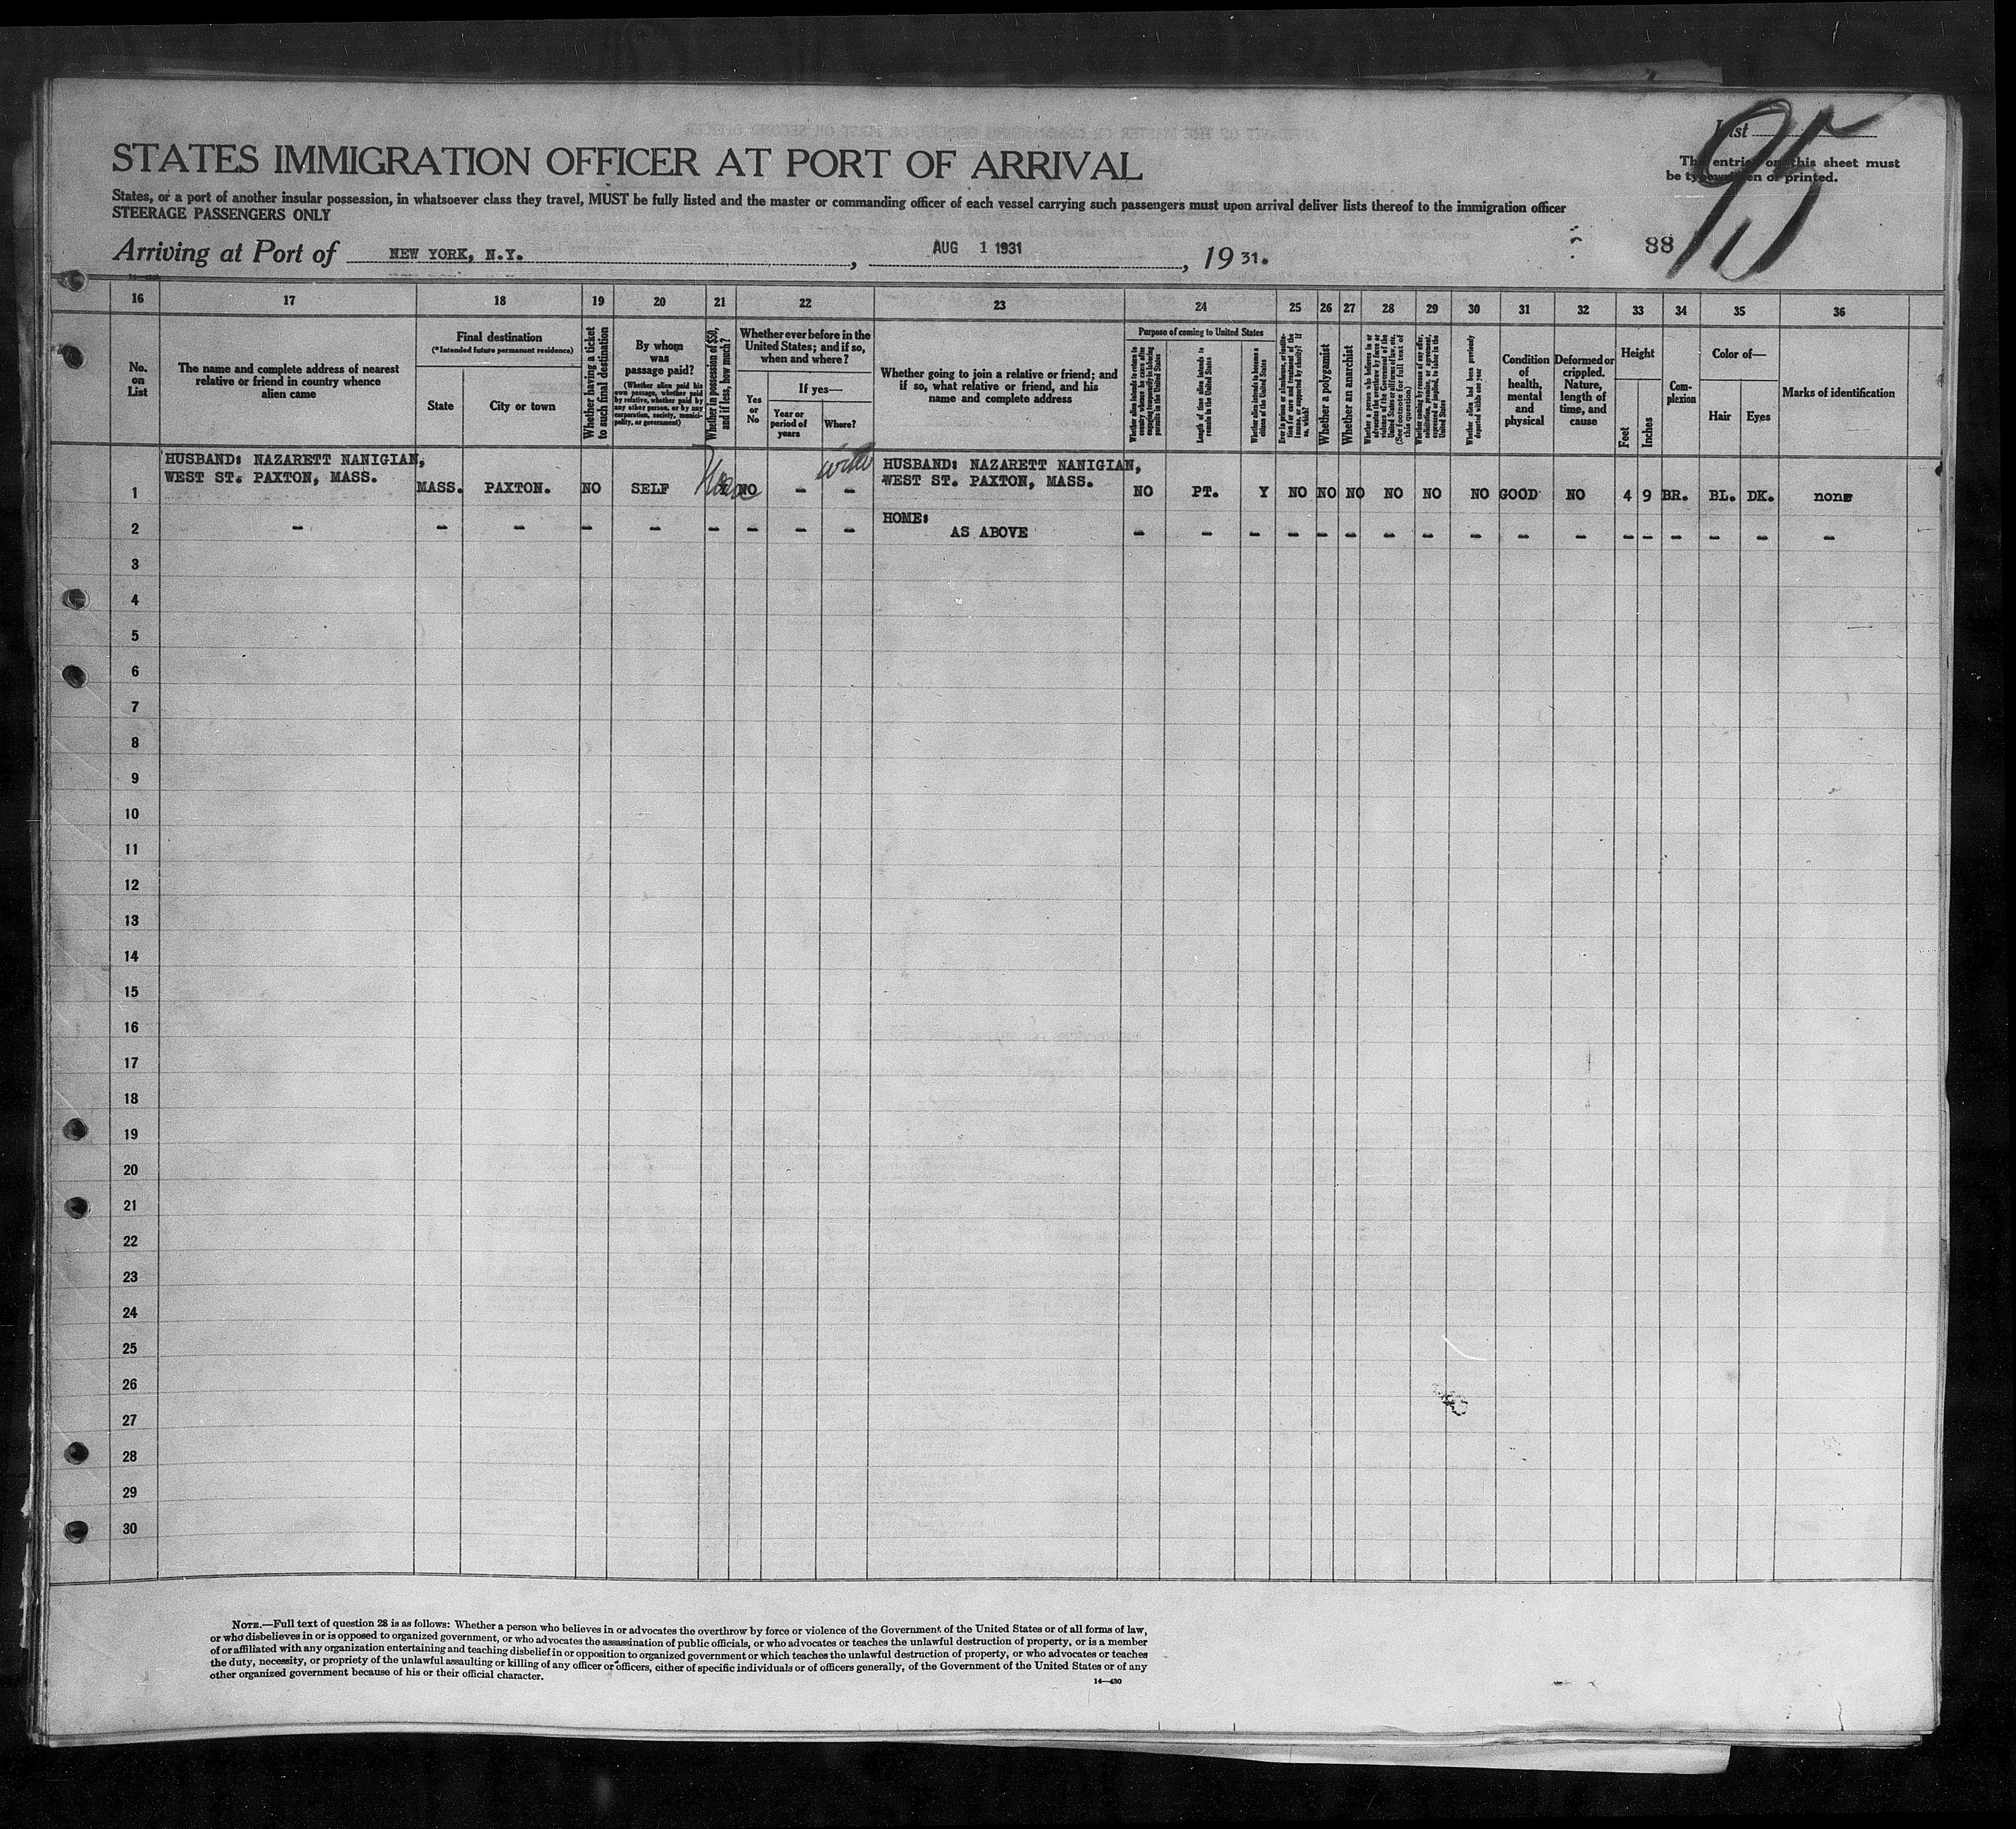 List
95
STATES IMMIGRATION OFFICER AT PORT OF ARRIVAL
The entries on this sheet must
be typewritten or printed.
States, or a port of another insular possession, in whatsoever class they travel, MUST be fully listed and the master or commanding officer of each vessel carrying such passengers must upon arrival deliver lists thereof to the immigration officer
STEERAGE PASSENGERS ONLY
Arriving at Port of NEW YORK, N.Y., AUG 1 1931, 19 31.
88
16 17 18 19 20 21 22 23 24 25 26 27 28 29 30 31 32 33 34 35 36
No.
on
List
The name and complete address of nearest
relative or friend in country whence
alien came
Final destination
(*Intended future permanent residence)
State
City or town
Whether having a ticket
to such final destination
By whom
was
passage paid?
(Whether alien paid his
own passage, whether paid
by relative, whether paid by
any other person, or by any
corporation, society, munici-
pality, or government)
Whether in possession of $50,
and if less, how much?
Whether ever before in the
United States; and if so,
when and where?
Yes
or
No
If yes—
Year or
period of
years
Where?
Whether going to join a relative or friend; and
if so, what relative or friend, and his
name and complete address
Purpose of coming to United States
Whether alien intends to return to
country whence he came after
engaging temporarily in laboring
pursuits in the United States
Length of time alien intends to
remain in the United States
Whether alien intends to become a
citizen of the United States
Ever in prison or almshouse, or institu-
tion for care and treatment of the
insane, or supported by charity? If
so, which?
Whether a polygamist
Whether an anarchist
Whether a person who believes in or
advocates the overthrow by force or
violence of the Government of the
United States or all forms of law, etc.
(See footnote for full text of
this question)
Whether coming by reason of any offer,
solicitation, promise, or agreement,
expressed or implied, to labor in the
United States
Whether alien had been previously
deported within one year
Condition
of
health,
mental
and
physical
Deformed or
crippled.
Nature,
length of
time, and
cause
Height
Feet
Inches
Com-
plexion
Color of—
Hair
Eyes
Marks of identification
HUSBAND: NAZARETT NANIGIAN,
WEST ST. PAXTON, MASS.
HUSBAND: NAZARETT NANIGIAN,
WEST ST. PAXTON, MASS.
1 MASS. PAXTON. NO SELF NO - - NO PT. Y NO NO NO NO NO NO GOOD NO 4 9 BR. BL. DK. none
HOME:
2 - - - - - - - - - AS ABOVE - - - - - - - - - - - - - - - - -
3
4
5
6
7
8
9
10
11
12
13
14
15
16
17
18
19
20
21
22
23
24
25
26
27
28
29
30
NOTE.—Full text of question 28 is as follows: Whether a person who believes in or advocates the overthrow by force or violence of the Government of the United States or of all forms of law,
or who disbelieves in or is opposed to organized government, or who advocates the assassination of public officials, or who advocates or teaches the unlawful destruction of property, or is a member
of or affiliated with any organization entertaining and teaching disbelief in or opposition to organized government or which teaches the unlawful destruction of property, or who advocates or teaches
the duty, necessity, or propriety of the unlawful assaulting or killing of any officer or officers, either of specific individuals or of officers generally, of the Government of the United States or of any
other organized government because of his or their official character.
14—430